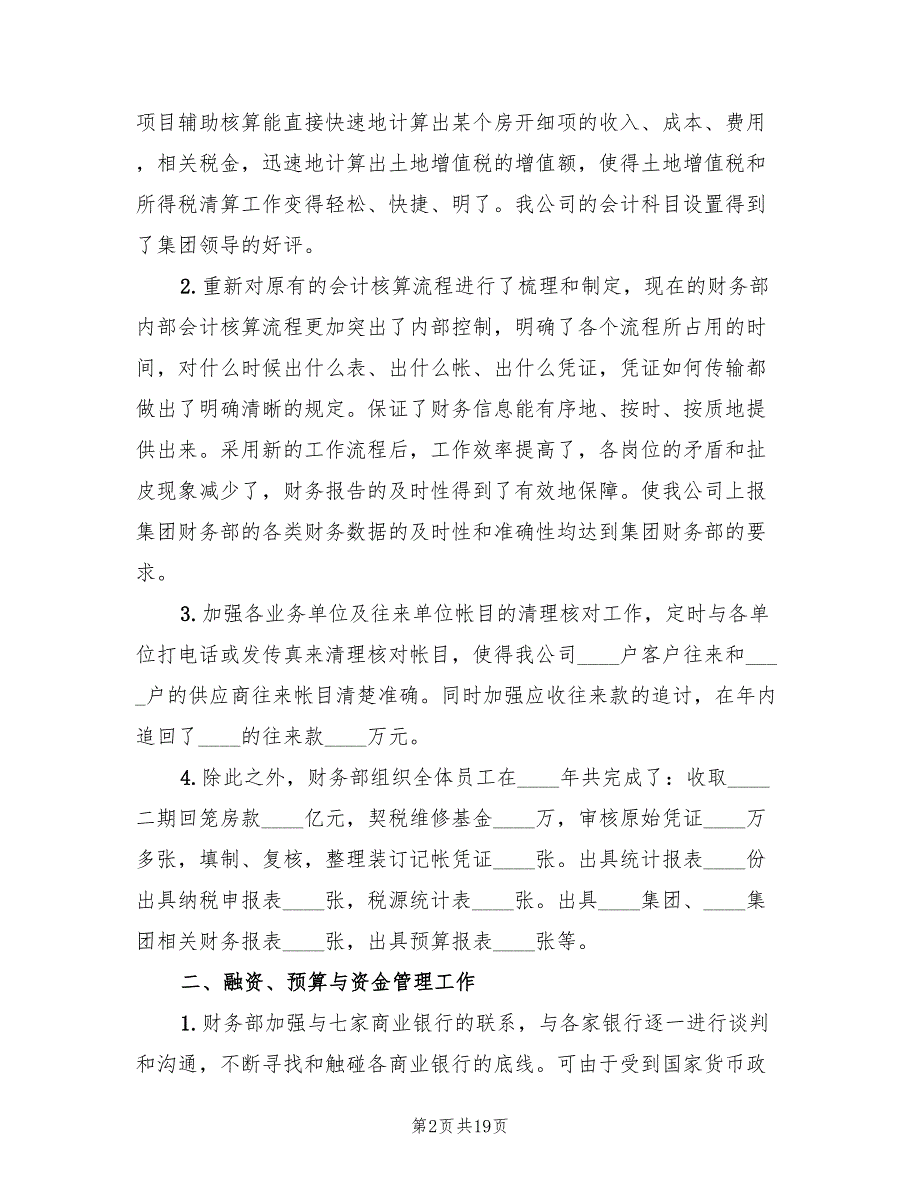 项目辅助核算能直接快速地计算出某个房开细项的收入、成本、费用
，相关税金，迅速地计算出土地增值税的增值额，使得土地增值税和
所得税清算工作变得轻松、快捷、明了。我公司的会计科目设置得到
了集团领导的好评。
2. 重新对原有的会计核算流程进行了梳理和制定，现在的财务部
内部会计核算流程更加突出了内部控制，明确了各个流程所占用的时
间，对什么时候出什么表、出什么帐、出什么凭证，凭证如何传输都
做出了明确清晰的规定。保证了财务信息能有序地、按时、按质地提
供出来。采用新的工作流程后，工作效率提高了，各岗位的矛盾和扯
皮现象减少了，财务报告的及时性得到了有效地保障。使我公司上报
集团财务部的各类财务数据的及时性和准确性均达到集团财务部的要
求。
3. 加强各业务单位及往来单位帐目的清理核对工作，定时与各单
位打电话或发传真来清理核对帐目，使得我公司____户客户往来和___
_户的供应商往来帐目清楚准确。同时加强应收往来款的追讨，在年内
追回了____的往来款____万元。
4. 除此之外，财务部组织全体员工在____年共完成了：收取____
二期回笼房款____亿元，契税维修基金____万，审核原始凭证____万
多张，填制、复核，整理装订记帐凭证____张。出具统计报表____份
出具纳税申报表____张，税源统计表____张。出具____集团、____集
团相关财务报表____张，出具预算报表____张等。
二、融资、预算与资金管理工作
1. 财务部加强与七家商业银行的联系，与各家银行逐一进行谈判
和沟通，不断寻找和触碰各商业银行的底线。可由于受到国家货币政
第2页共19页